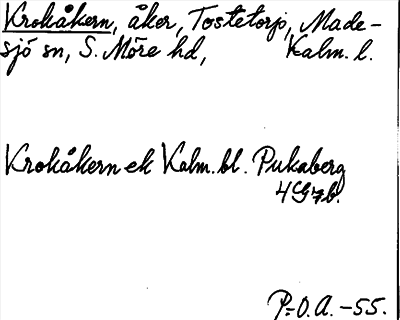 Krokåkern, åker, Tostetorp, Made-
sjö sn, S. Möre hd, Kalm. l.
Krokåkern ek Kalm. bl. Pukaberg
4G7b.
P-O.A. -55.